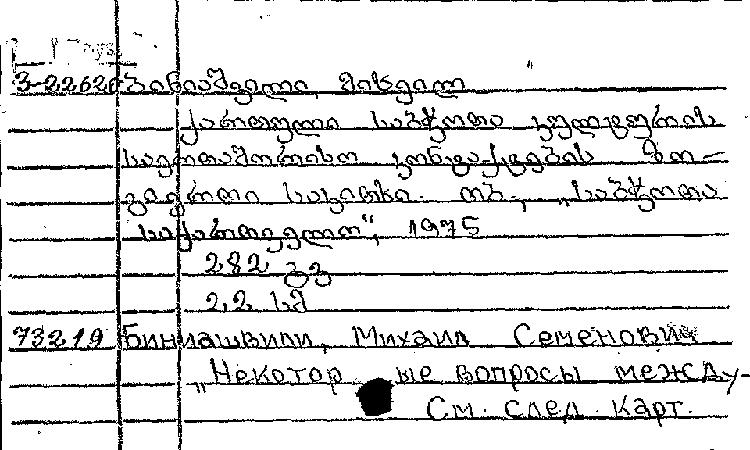 3-22626 ბინიაშვილი, მიხეილ
ქართული საბჭოთა კულტურის
საერთაშორისო კონტაქტების ზო-
გიერთი საკითხი. თბ., „საბჭოთა
საქართველო“, 1975
282 გვ
22 სმ
73219 Биниашвили, Михаил Семенович
„Некоторые вопросы между-
См. след. карт.